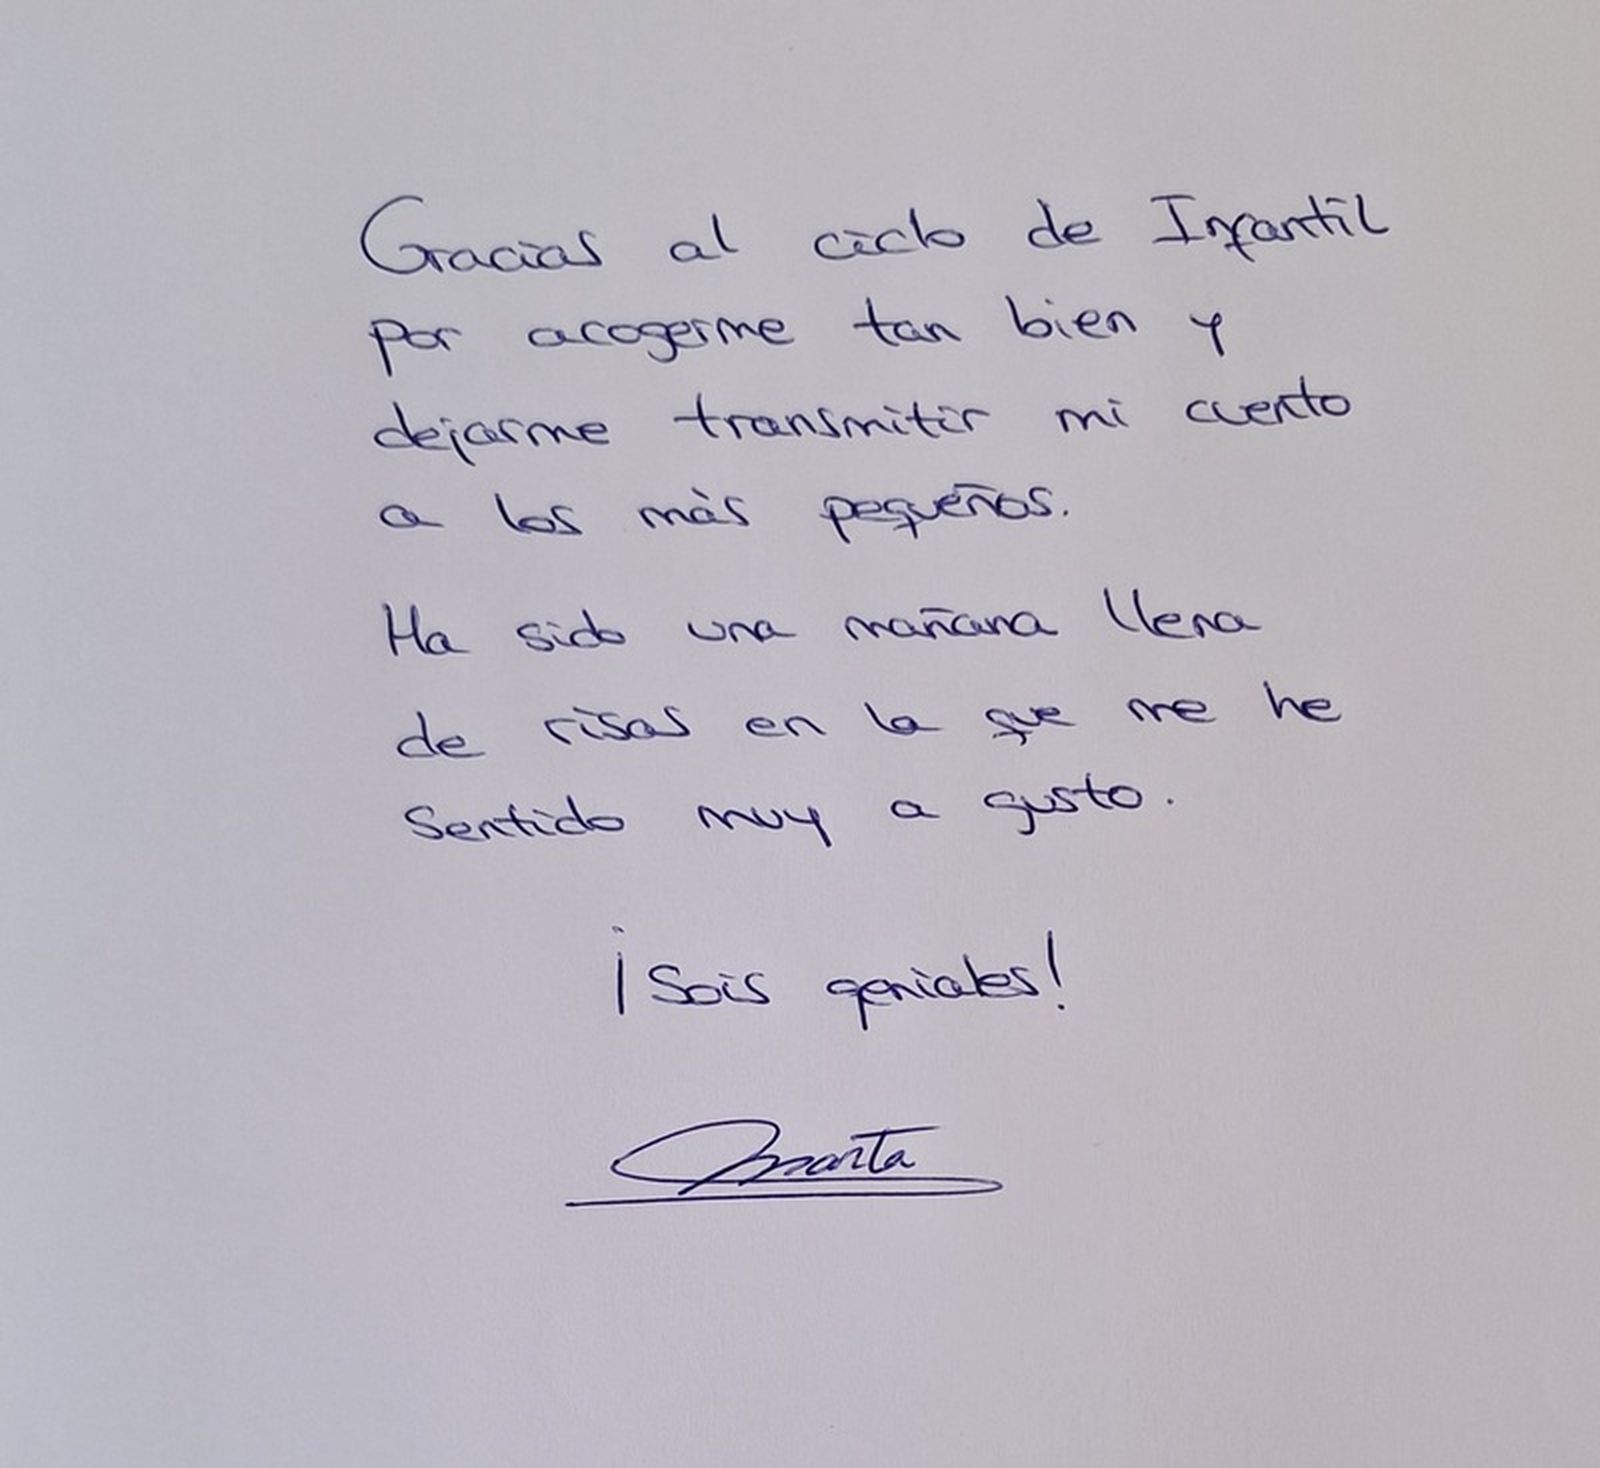 Gracias al ciclo de Infantil
por acogerme tan bien y
dejarme transmitir mi cuento
a los más pequeños.
Ha sido una mañana llena
de risas en la que me he
sentido muy a gusto.
¡Sois geniales!
Marta